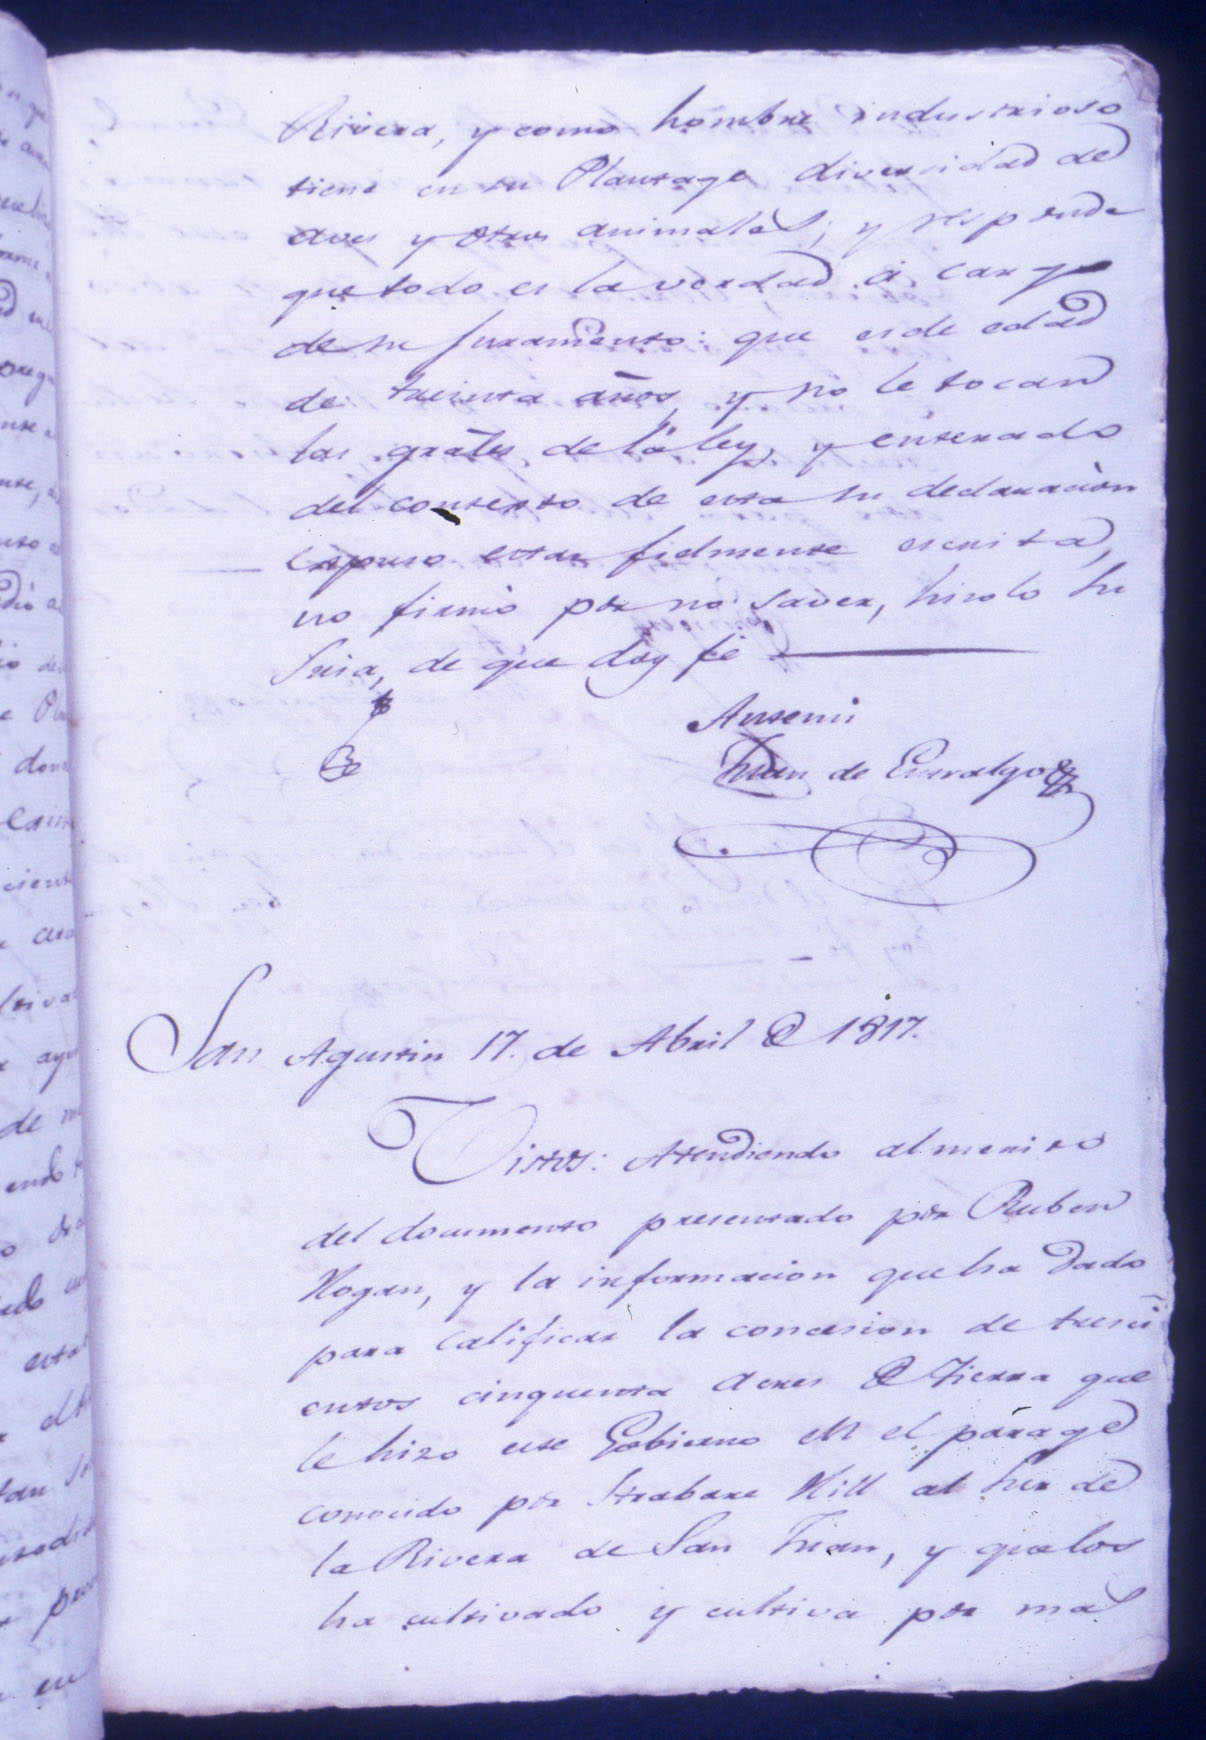 Rivera, y como hombre industrioso
tiene en su Plantage diversidad de
aves y otros animales; y responde
que todo es la verdad á cargo
de su juramento: que es de edad
de treinta años, y no le tocan
las grales de la ley, y enterado
del contexto de esta su declaracion
expuso estar fielmente escrita,
no firmó por no saver, hizolo su
Sria, de que doy fé
Antemi
Juan de Entralgo
San Agustin 17. de Abril de 1817.
Vistos: Atendiendo al merito
del documento presentado por Ruben
Hogan, y la informacion que ha dado
para calificar la concesion de tresci
entos cinquenta acres de tierra que
le hizo este Gobierno en el parage
conocido por Strabane Hill al Sur de
la Rivera de San Juan, y que los
ha cultivado y cultiva por mas